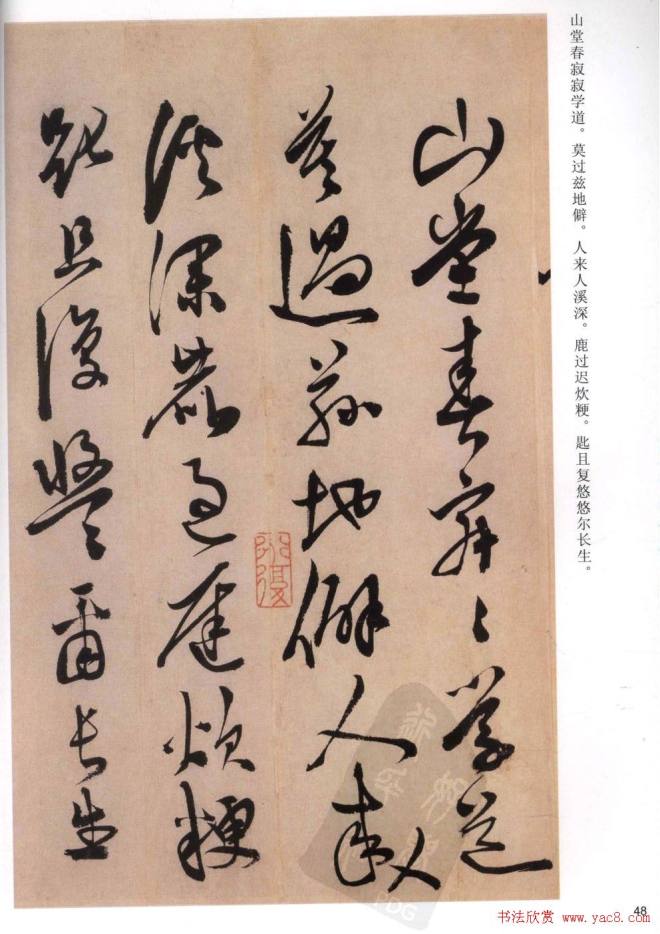 山堂春寂寂学道。莫过兹地僻。人来人溪深。鹿过迟炊粳。匙且复悠悠尔长生。
山堂春寂〻學道
莫過茲地僻人來
溪深鹿過遲炊粳
匙且復悠〻爾長生
48
书法欣赏 www.yac8.com